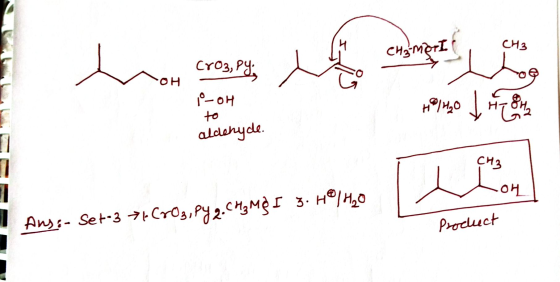 OH
CrO3, Py.
1°-OH
to
aldehyde.
H
O
CH3-MgI
CH3
O⊖
H⊕/H2O
H-O⊕H2
CH3
OH
Product
Ans:- Set-3 → 1. CrO3, Py 2. CH3MgI 3. H⊕/H2O